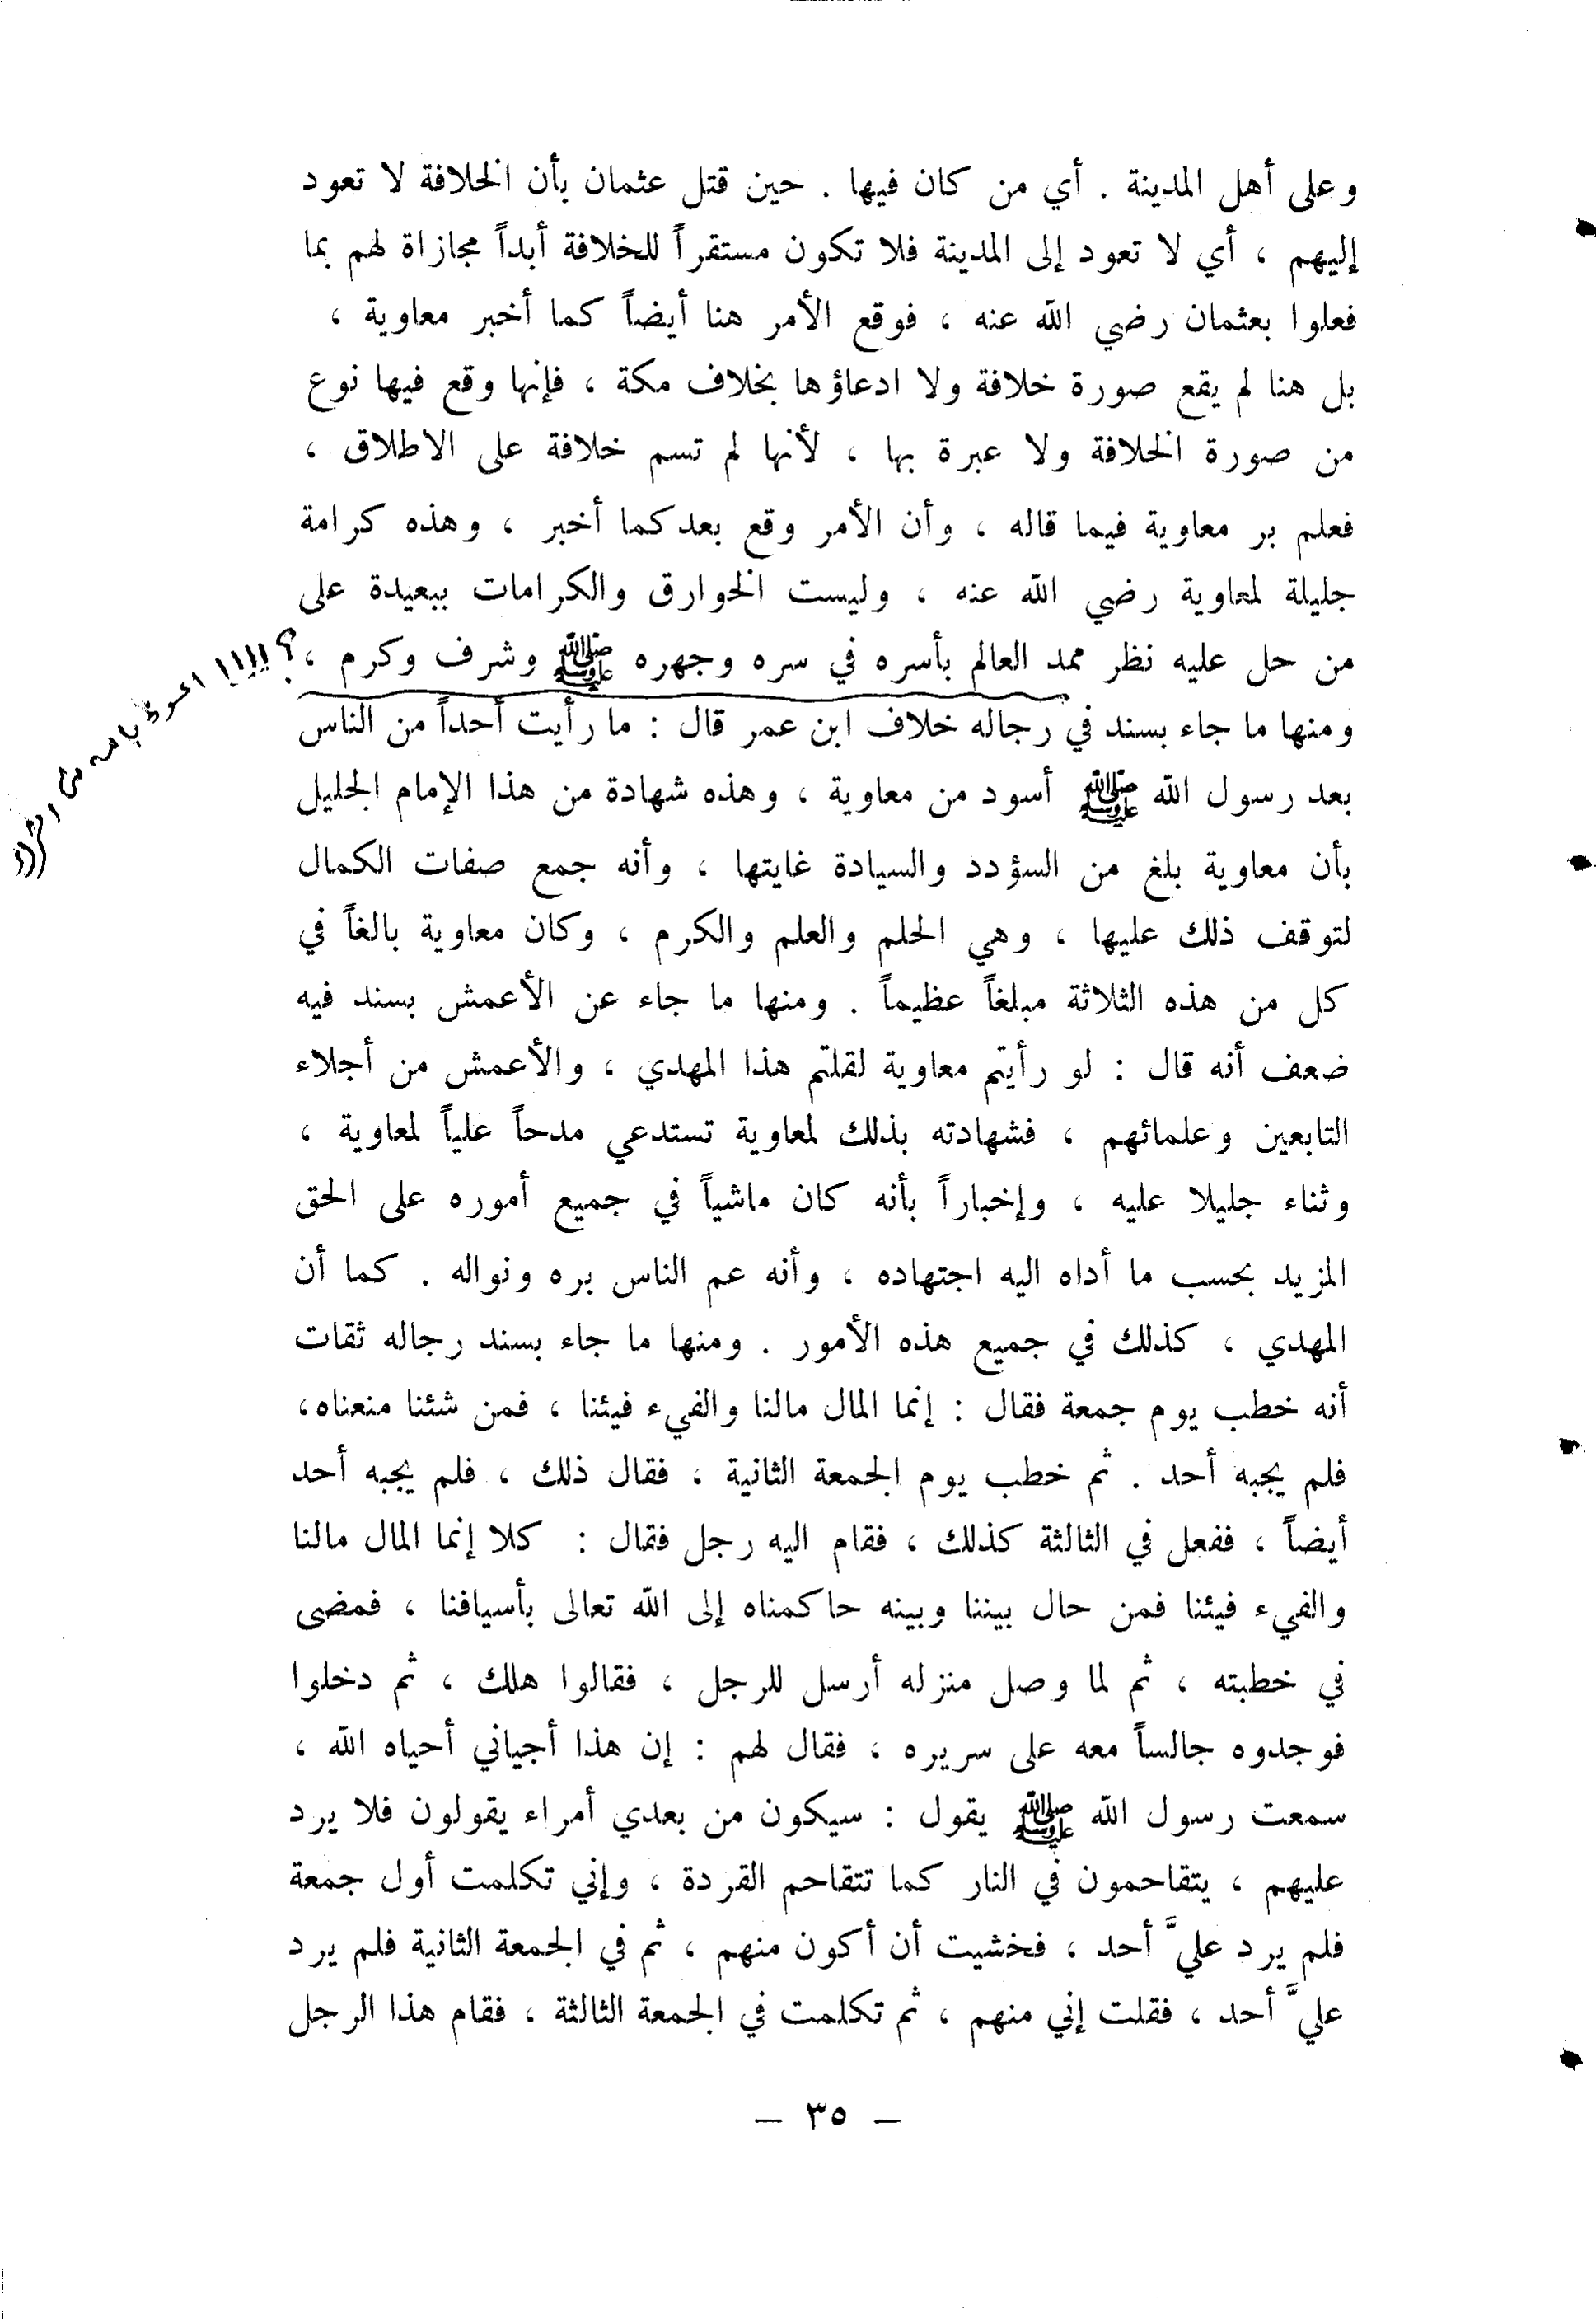 وعلى أهل المدينة . أي من كان فيها . حين قتل عثمان بأن الخلافة لا تعود
إليهم ، أي لا تعود إلى المدينة فلا تكون مستقراً للخلافة أبداً مجازاة لهم بما
فعلوا بعثمان رضي الله عنه ، فوقع الأمر هنا أيضاً كما أخبر معاوية ،
بل هنا لم يقع صورة خلافة ولا ادعاؤها بخلاف مكة ، فإنها وقع فيها نوع
من صورة الخلافة ولا عبرة بها ، لأنها لم تسم خلافة على الاطلاق ،
فعلم بر معاوية فيما قاله ، وأن الأمر وقع بعد كما أخبر ، وهذه كرامة
جليلة لمعاوية رضي الله عنه ، وليست الخوارق والكرامات ببعيدة على
من حل عليه نظر ممد العالم بأسره في سره وجهره ﷺ وشرف وكرم ،
؟ !!!! اعوذ بالله من الشرك
ومنها ما جاء بسند في رجاله خلاف ابن عمر قال : ما رأيت أحداً من الناس
بعد رسول الله ﷺ أسود من معاوية ، وهذه شهادة من هذا الإمام الجليل
بأن معاوية بلغ من السؤدد والسيادة غايتها ، وأنه جمع صفات الكمال
لتوقف ذلك عليها ، وهي الحلم والعلم والكرم ، وكان معاوية بالغاً في
كل من هذه الثلاثة مبلغاً عظيماً . ومنها ما جاء عن الأعمش بسند فيه
ضعف أنه قال : لو رأيتم معاوية لقلتم هذا المهدي ، والأعمش من أجلاء
التابعين وعلمائهم ، فشهادته بذلك لمعاوية تستدعي مدحاً علياً لمعاوية ،
وثناء جليلا عليه ، وإخباراً بأنه كان ماشياً في جميع أموره على الحق
المزيد بحسب ما أداه اليه اجتهاده ، وأنه عم الناس بره ونواله . كما أن
المهدي ، كذلك في جميع هذه الأمور . ومنها ما جاء بسند رجاله ثقات
أنه خطب يوم جمعة فقال : إنما المال مالنا والفيء فيئنا ، فمن شئنا منعناه،
فلم يجبه أحد . ثم خطب يوم الجمعة الثانية ، فقال ذلك ، فلم يجبه أحد
أيضاً ، ففعل في الثالثة كذلك ، فقام اليه رجل فقال : كلا إنما المال مالنا
والفيء فيئنا فمن حال بيننا وبينه حاكمناه إلى الله تعالى بأسيافنا ، فمضى
في خطبته ، ثم لما وصل منزله أرسل للرجل ، فقالوا هلك ، ثم دخلوا
فوجدوه جالساً معه على سريره ، فقال لهم : إن هذا أجياني أحياه الله ،
سمعت رسول الله ﷺ يقول : سيكون من بعدي أمراء يقولون فلا يرد
عليهم ، يتقاحمون في النار كما تتقاحم القردة ، وإني تكلمت أول جمعة
فلم يرد عليَّ أحد ، فخشيت أن أكون منهم ، ثم في الجمعة الثانية فلم يرد
عليَّ أحد ، فقلت إني منهم ، ثم تكلمت في الجمعة الثالثة ، فقام هذا الرجل
— ٣٥ —